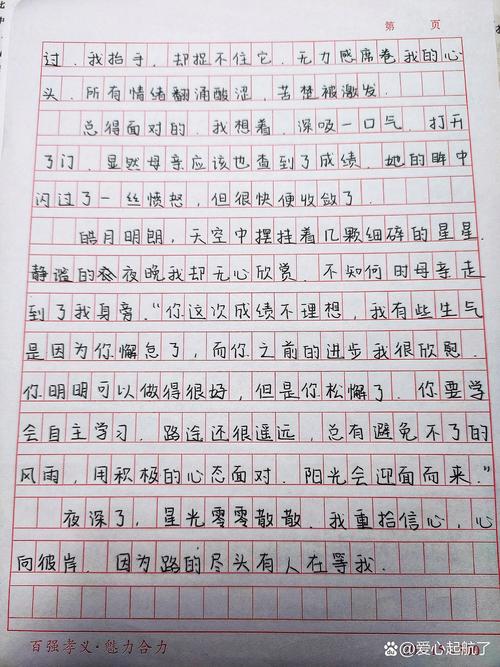 第 页
过．我抬手，却捉不住它．无力感席卷我的心
头．所有情绪翻涌酸涩，苦楚被激发．
总得面对的．我想着．深吸一口气．打开
了门．显然母亲应该也查到了成绩．她的眸中
闪过了一丝愤怒，但很快便收敛了．
皓月明朗，天空中摆挂着几颗细碎的星星．
静谧的夜晚我却无心欣赏．不知何时母亲走
到了我身旁．“你这次成绩不理想，我有些生气
是因为你懈怠了，而你之前的进步我很欣慰．
你明明可以做得很好，但是你松懈了．你要学
会自主学习．路途还很遥远，总有避免不了的
风雨，用积极的心态面对．阳光会迎面而来．”
夜深了，星光零零散散．我重拾信心，心
向彼岸．因为路的尽头有人在等我．
百强孝义·魅力合力
@爱心起航了